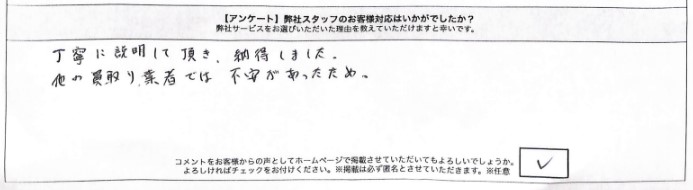 【アンケート】弊社スタッフのお客様対応はいかがでしたか？
弊社サービスをお選びいただいた理由を教えていただけますと幸いです。
丁寧に説明して頂き、納得しました。
他の買取り業者では不安があったため。
コメントをお客様からの声としてホームページで掲載させていただいてもよろしいでしょうか。
よろしければチェックをお付けください。※掲載は必ず匿名とさせていただきます。※任意